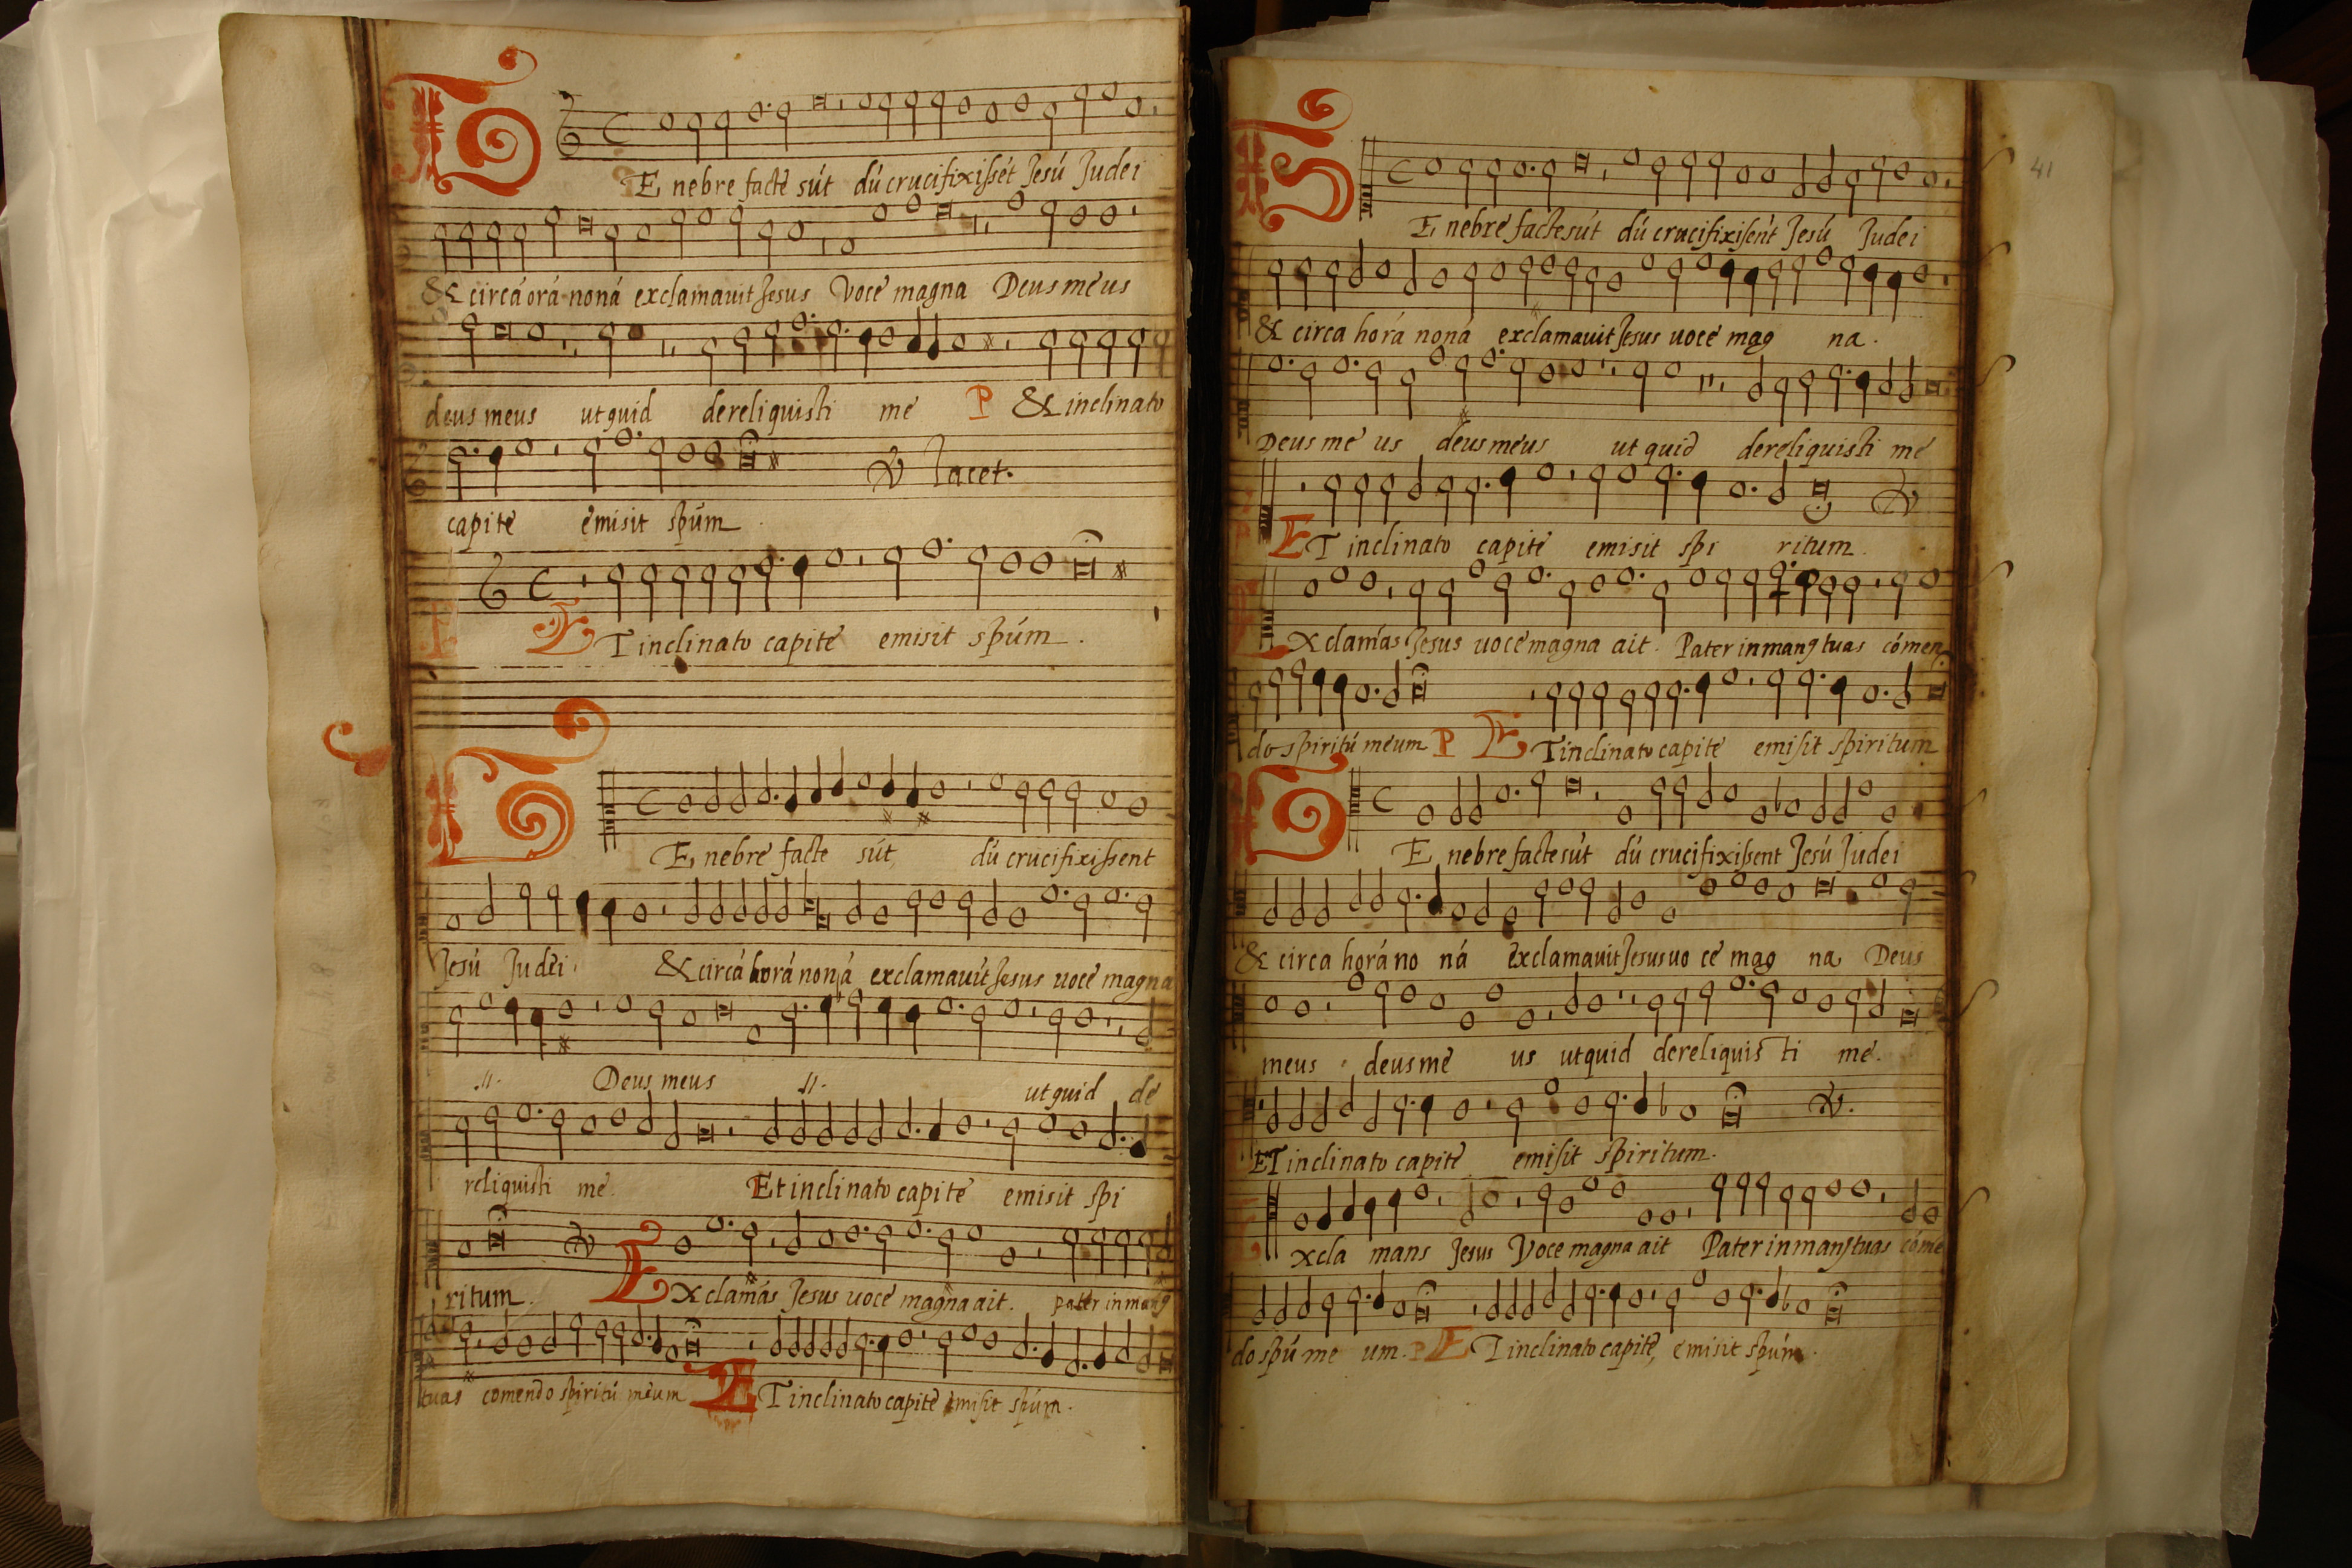 TE nebre factẻ sút dú crucifixissét Jesú Judei
& circá orá noná exclamauit Jesus Voce magna Deus meus
deus meus ut quid dereliquisti me P & inclinato
capite emisit spúm
Tacet.
ET inclinato capite emisit spúm.
TE nebre facte sút, dú crucifixissent
Jesú Judei & circá horá noná exclamauit Jesus uoce magna
.ıı. Deus meus .ıı. ut quid de
reliquisti me. Et inclinato capite emisit spi
ritum. Exclamás Jesus uoce magna ait. pater in man9
tuas comendo spiritú meum ET inclinato capite emisit spúm.
41
TE nebre facte sút dú crucifixisent Jesú Judei
& circa horá noná exclamauit Jesus uoce mag na.
Deus me us deus meus ut quid dereliquisti me
ET inclinato capite emisit spi ritum.
Exclamás Jesus uoce magna ait. Pater in man9 tuas cómen
do spiritú meum P ET inclinato capite emisit spiritum
TE nebre facte sút dú crucifixissent Jesú Judei
& circa horá no ná exclamauit Jesus uo ce mag na Deus
meus deus me us ut quid dereliquis ti me.
ET inclinato capite emisit spiritum.
Excla mans Jesus Voce magna ait Pater in man9 tuas cóme
do spú me um. P ET inclinato capite, emisit spúm.